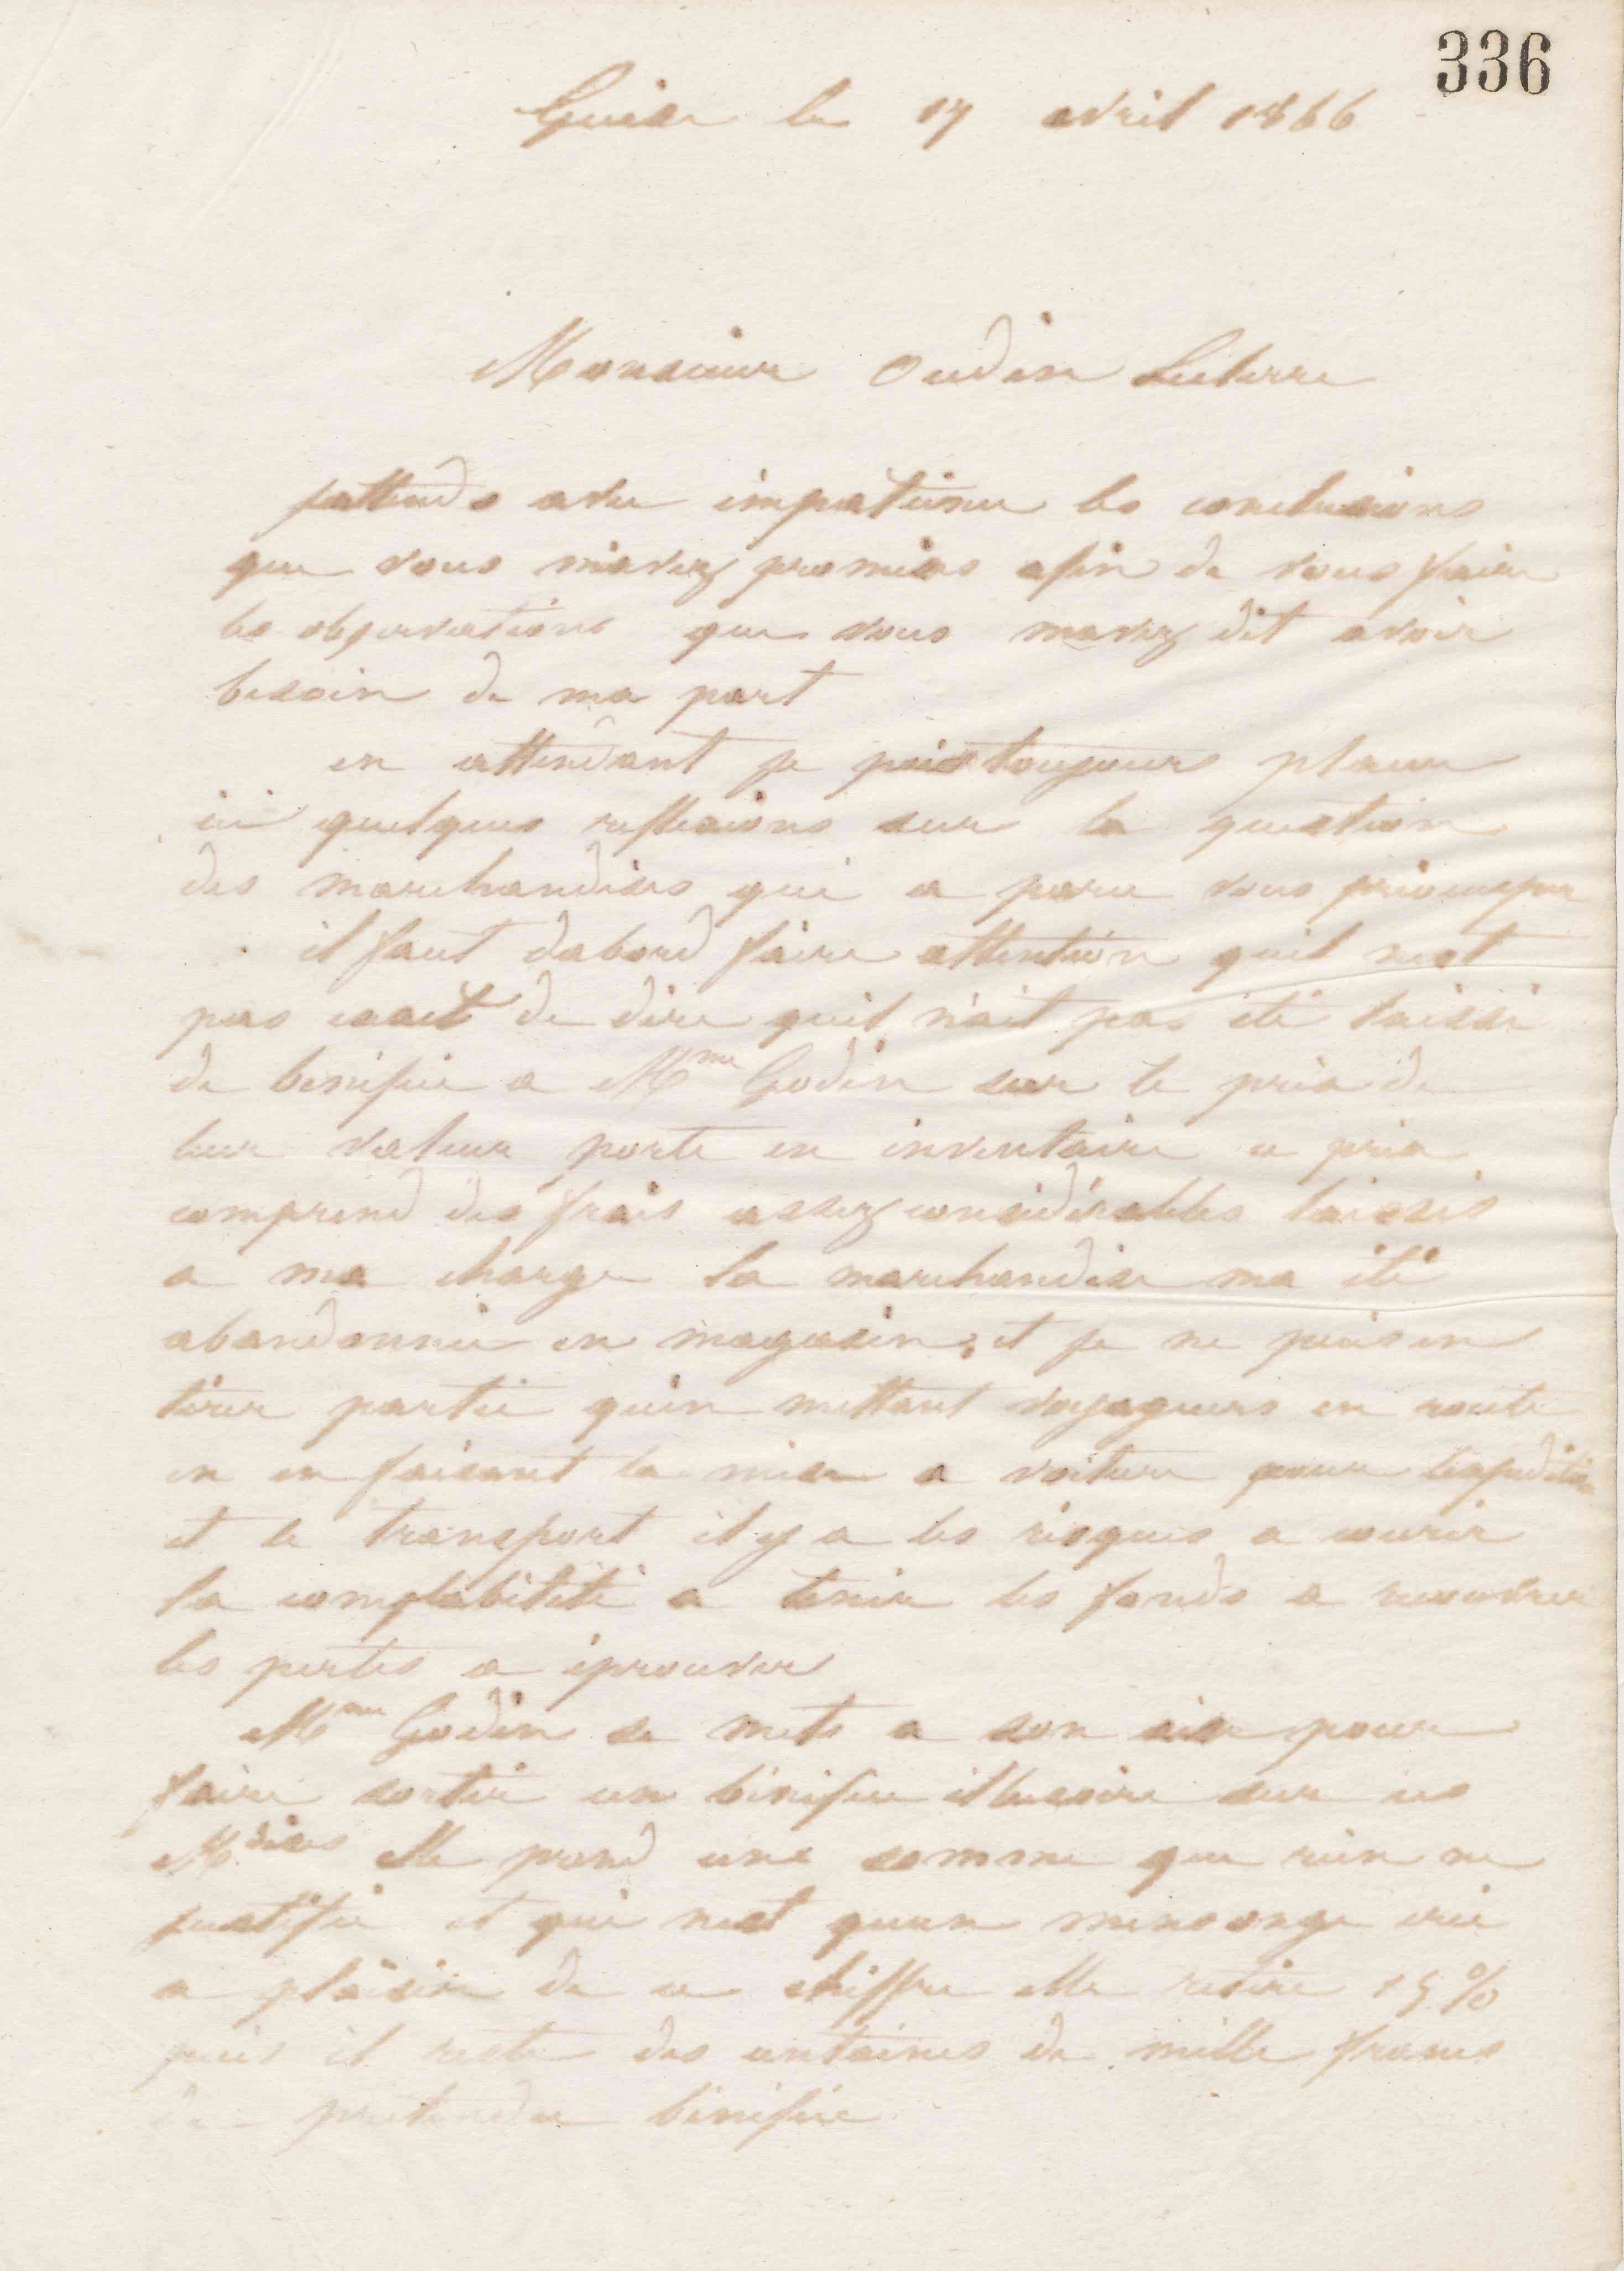 336
Guise le 17 avril 1866
Monsieur Oudin Leclerre
jattends avec impatience les conclusions
que vous mavez promises afin de vous faire
les observations que vous mavez dit avoir
besoin de ma part
en attendant je puis toujours placer
ici quelques reflexions sur la question
des marchandises qui a paru vous préocuper
il faut dabord faire attention quil nest
pas exact de dire quil nait pas été laissé
de benefice a Mme Godin sur le prix de
leur valeur porté en inventaire ce prix
comprend des frais assez considérables laissés
a ma charge la marchandise ma été
abandonnée en magasin, et je ne puis en
tirer partie quen mettant voyageurs en route
en en faisant la mise a voiture pour lexpédition
et le transport il y a les risques a courir
la comptabilité a tenir les fonds a recouvrer
les pertes a éprouver
Mme Godin se mets a son aise pour
faire sortir un bénéfice illusoire sur ces
Mdises elle prend une somme que rien ne
justifie et qui nest quun mensonge créé
a plaisir de ce chiffre elle retire 15 %
puis il reste des centaines de mille francs
de pretendu bénéfice